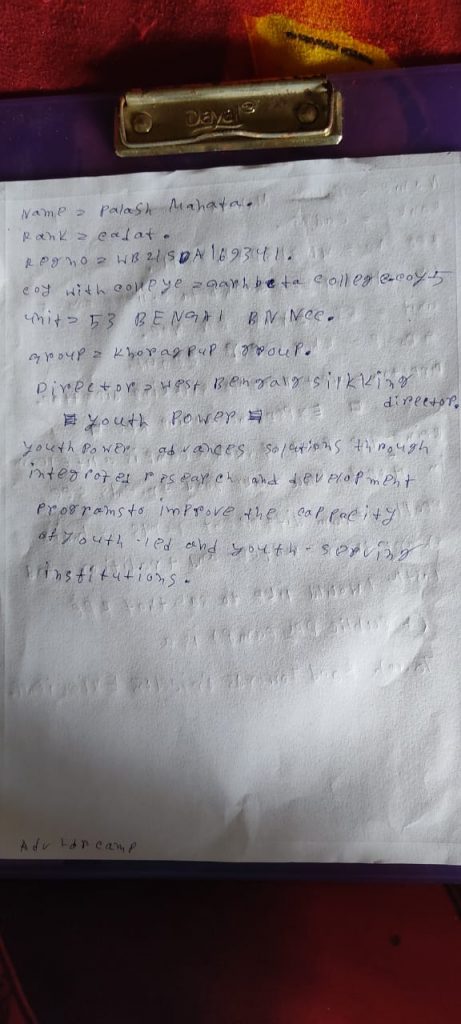 Dayal
Name = Palash Mahata.
Rank = cadat.
Regno = WB21SDA169341.
coy with colleye = garhbeta college.coy-5
unit = 53 BENGAl BN NCC.
group = Kharagpur group.
Director = west Bengal & sikking
director.
# Youth Power #
Youth Power advances solutions through
integrated research and development
programs to improve the cappacity
of youth-led and youth-serving
institutions.
Adv camp